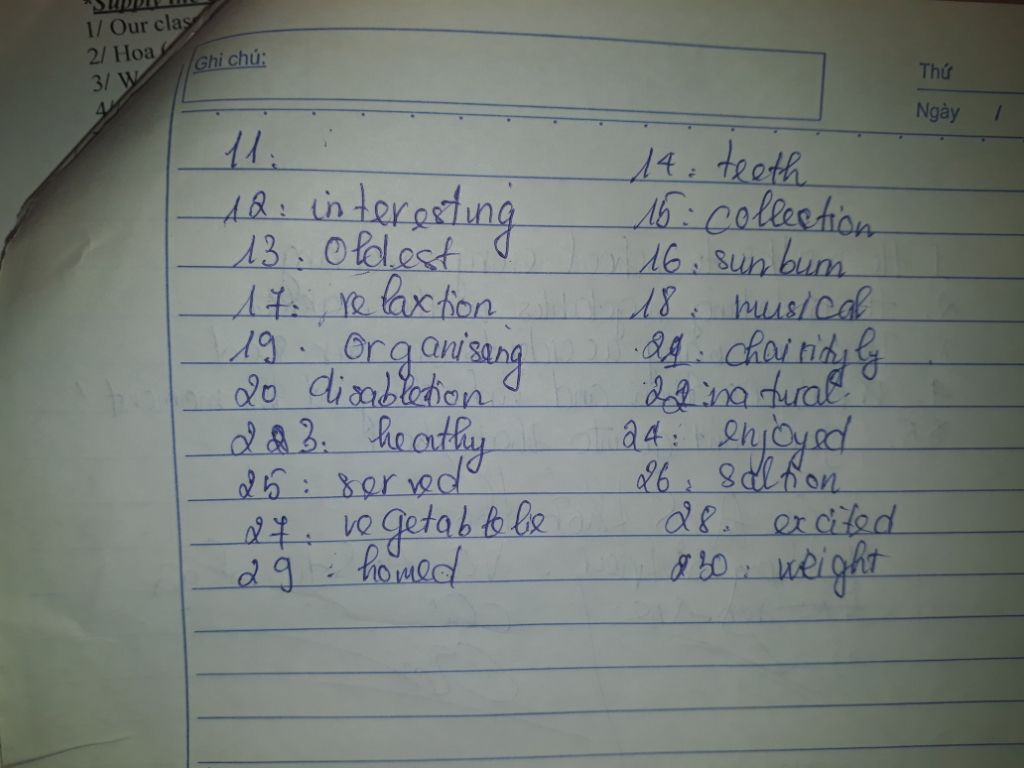 *Supply the
1/ Our clas
2/ Hoa (
3/ W
4/
Ghi chú:
Thứ
Ngày /
11:
14: teeth
12: interesting
15: collection
13: oldest
16: sunburn
17: relaxtion
18. musical
19. organisang
21: chairityly
20 disabletion
22: natural
23: heathy
24: enjoyed
25: served
26: saltion
27: vegetabtebe
28. excited
29: homed
30: weight